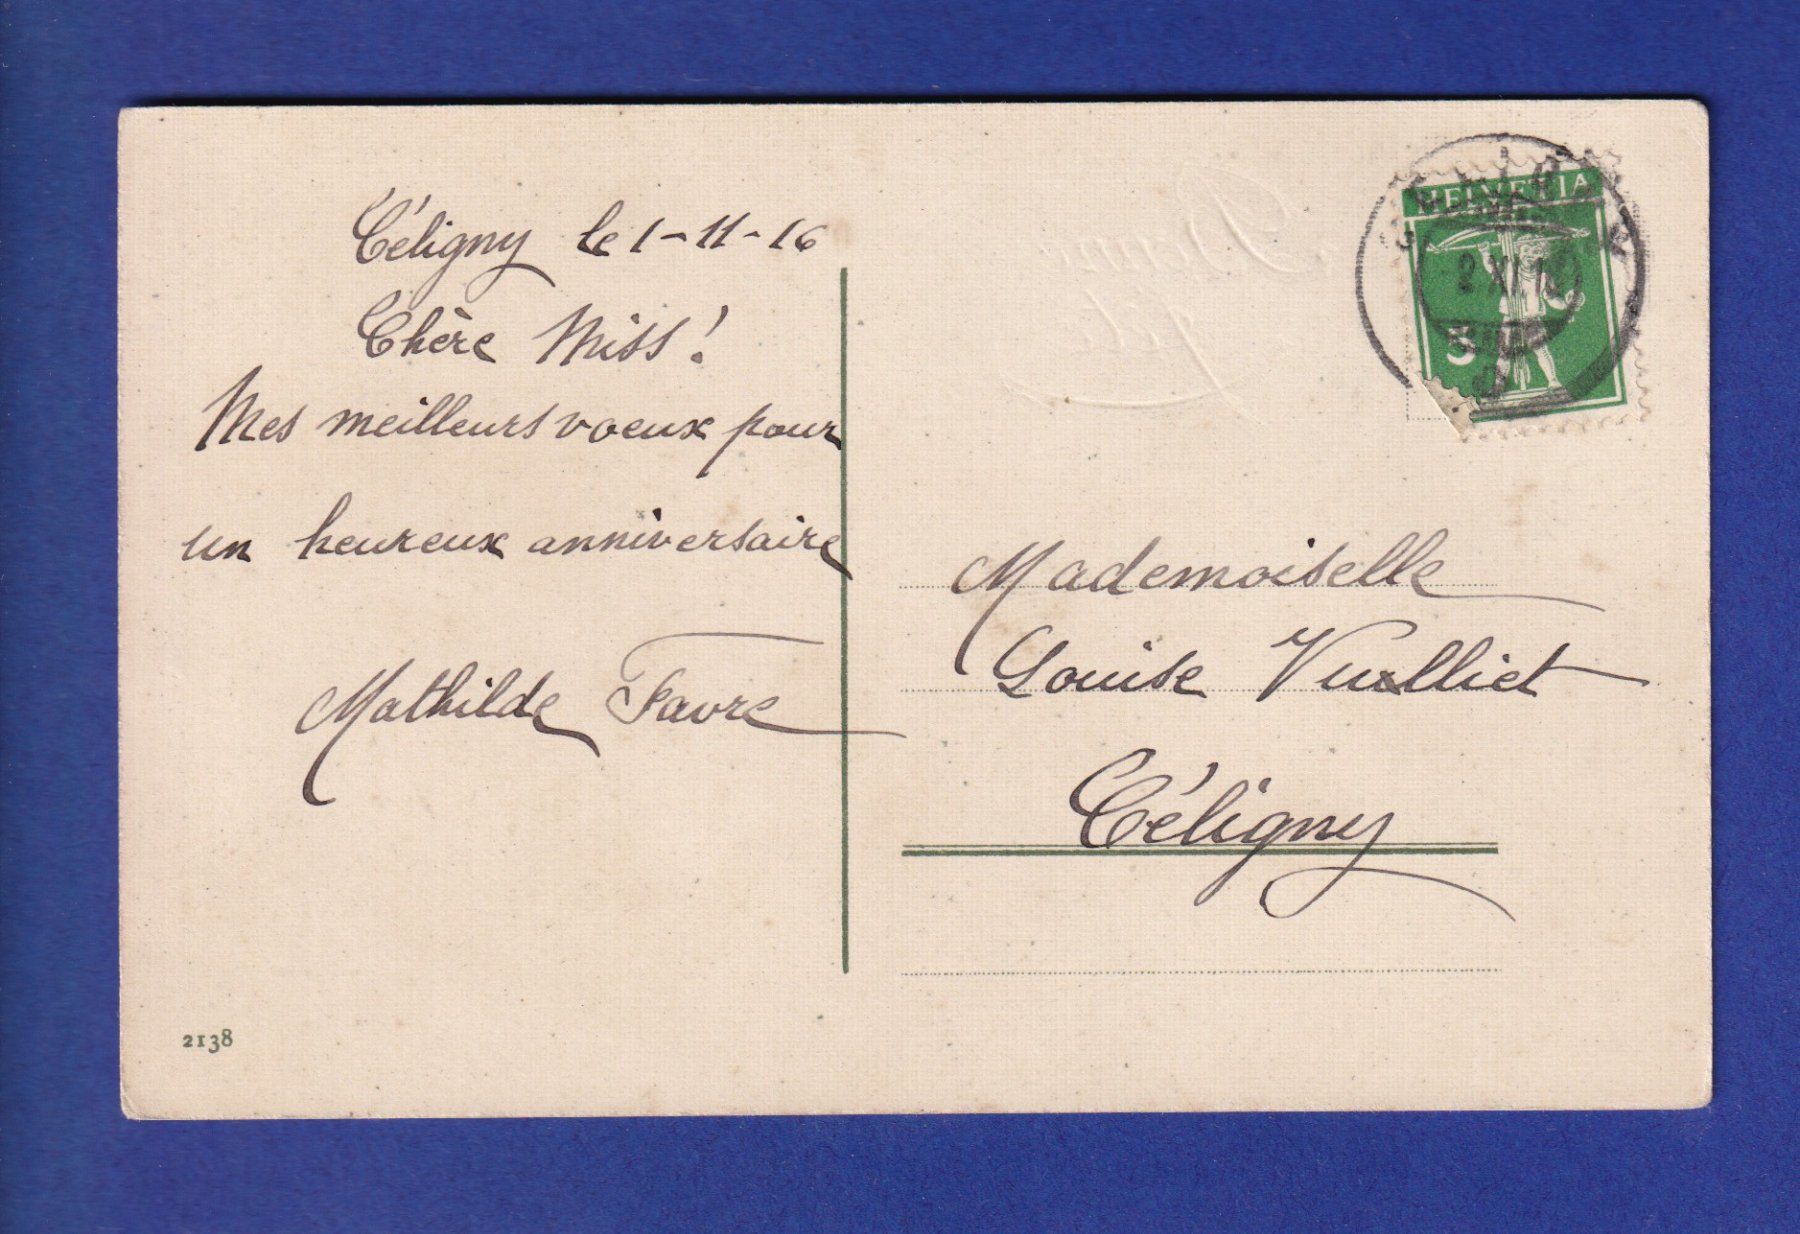 Céligny le 1-11-16
Chère Miss!
Mes meilleurs voeux pour
un heureux anniversaire
Mathilde Favre
2138
HELVETIA
2 XI.16
5
Mademoiselle
Louise Vulliet
Céligny